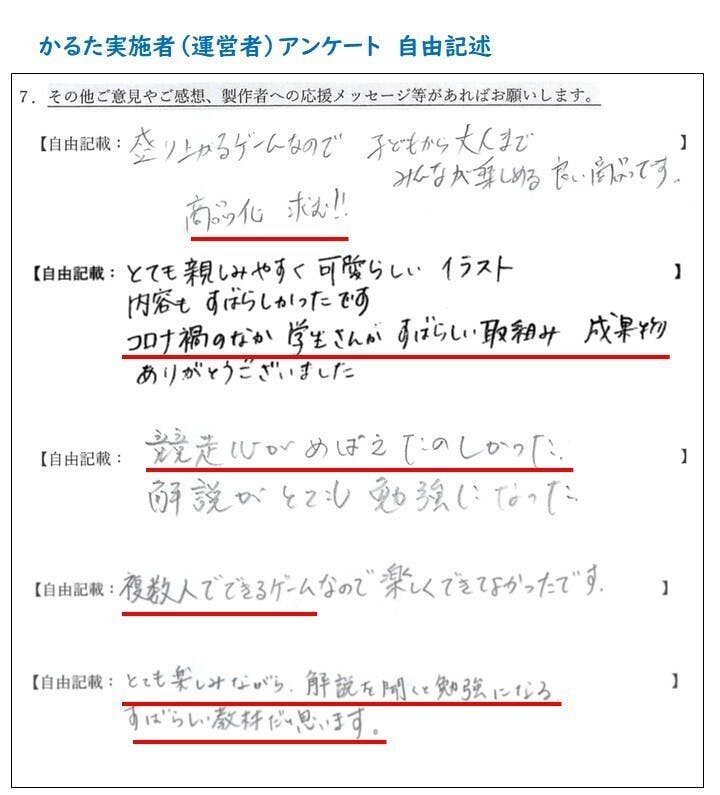 かるた実施者（運営者）アンケート　自由記述
７．その他ご意見やご感想、製作者への応援メッセージ等があればお願いします。
【自由記載： 盛り上がるゲームなので　子どもから大人まで 】
みんなが楽しめる良い商品です。
商品化　求む!!
【自由記載： とても親しみやすく可愛らしい　イラスト 】
内容も　すばらしかったです
コロナ禍のなか　学生さんが　すばらしい取組み　成果物
ありがとうございました
【自由記載： 競走心がめばえたのしかった。 】
解説がとても勉強になった
【自由記載： 複数人でできるゲームなので楽しくできてよかったです。 】
【自由記載： とても楽しみながら、解説を聞くと勉強になる 】
すばらしい教材だと思います。